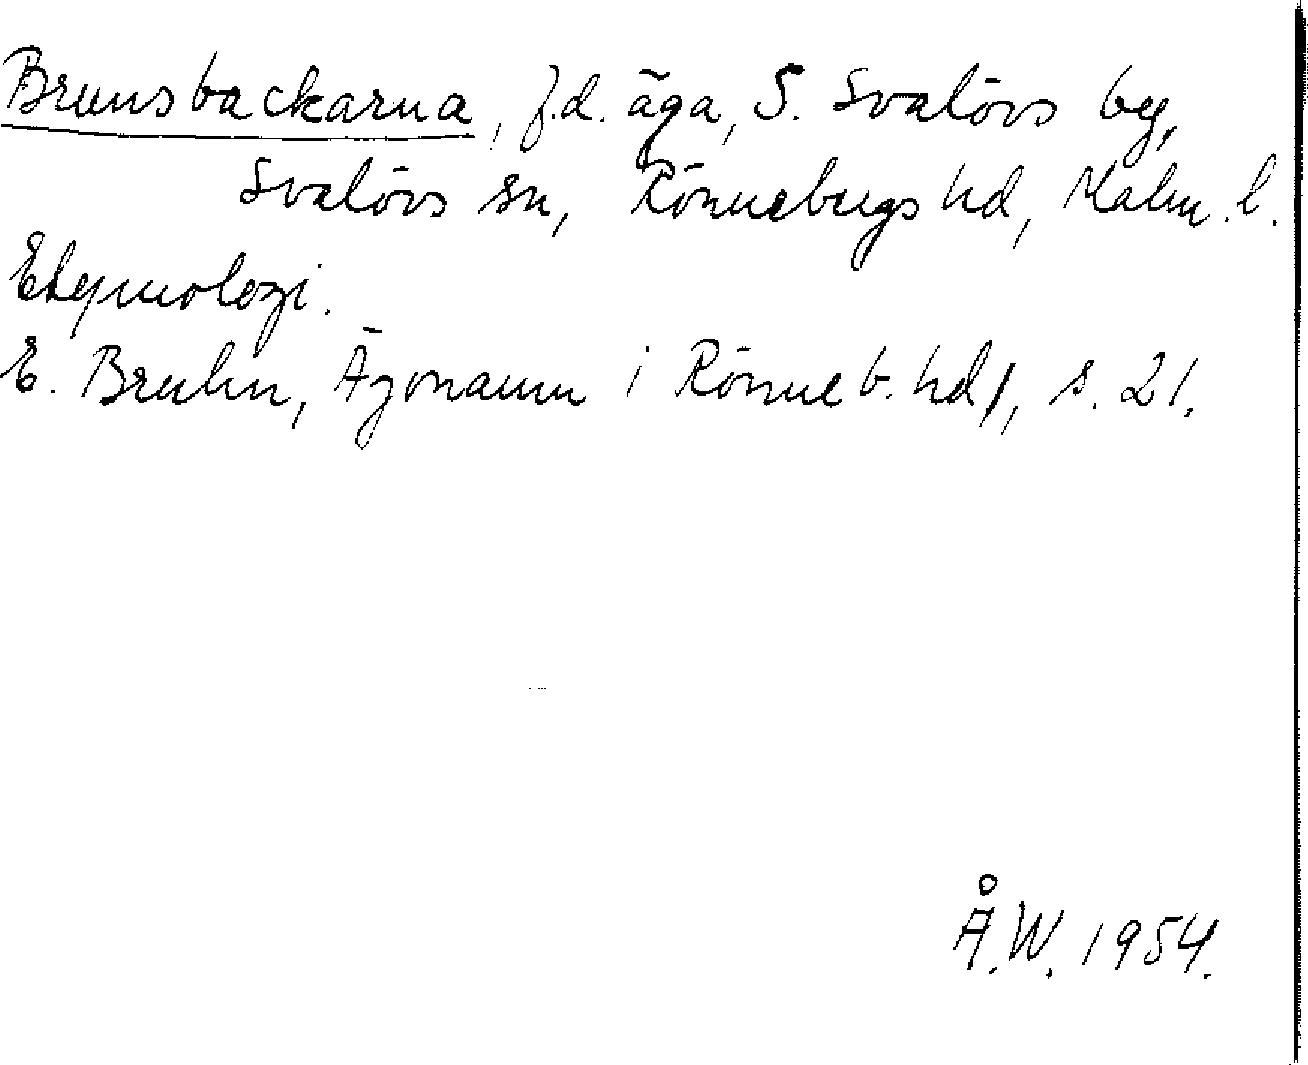 Brunsbackarna, f.d. äga, S. Svalövs by,
Svalövs sn, Rönnebergs hd, Malm. l.
Etymologi.
E. Bruhn, Ägonamn i Rönneb. hd 1, s. 21.
Å.W. 1954.